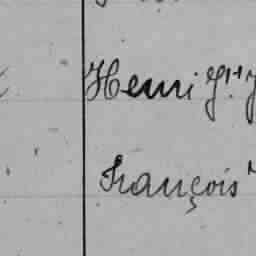 Henri
François